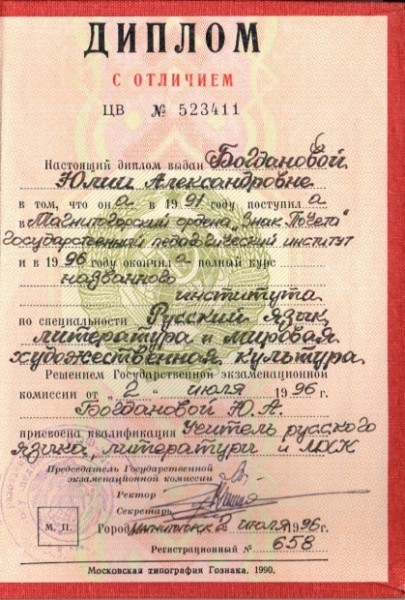 ДИПЛОМ
С ОТЛИЧИЕМ
ЦВ № 523411
Настоящий диплом выдан Богдановой
Юлии Александровне
в том, что она в 1991 году поступила
в Магнитогорский ордена „Знак Почёта"
государственный педагогический институт
и в 1996 году окончила полный курс
названного
института
по специальности Русский язык,
литература и мировая
художественная культура
Решением Государственной экзаменационной
комиссии от „2" июля 1996 г.
Богдановой Ю.А.
присвоена квалификация Учитель русского
языка, литературы и МХК
Председатель Государственной
экзаменационной комиссии
Ректор
Секретарь
М. П.
Город 2 июля 1996 г.
Регистрационный № 658
Московская типография Гознака. 1990.